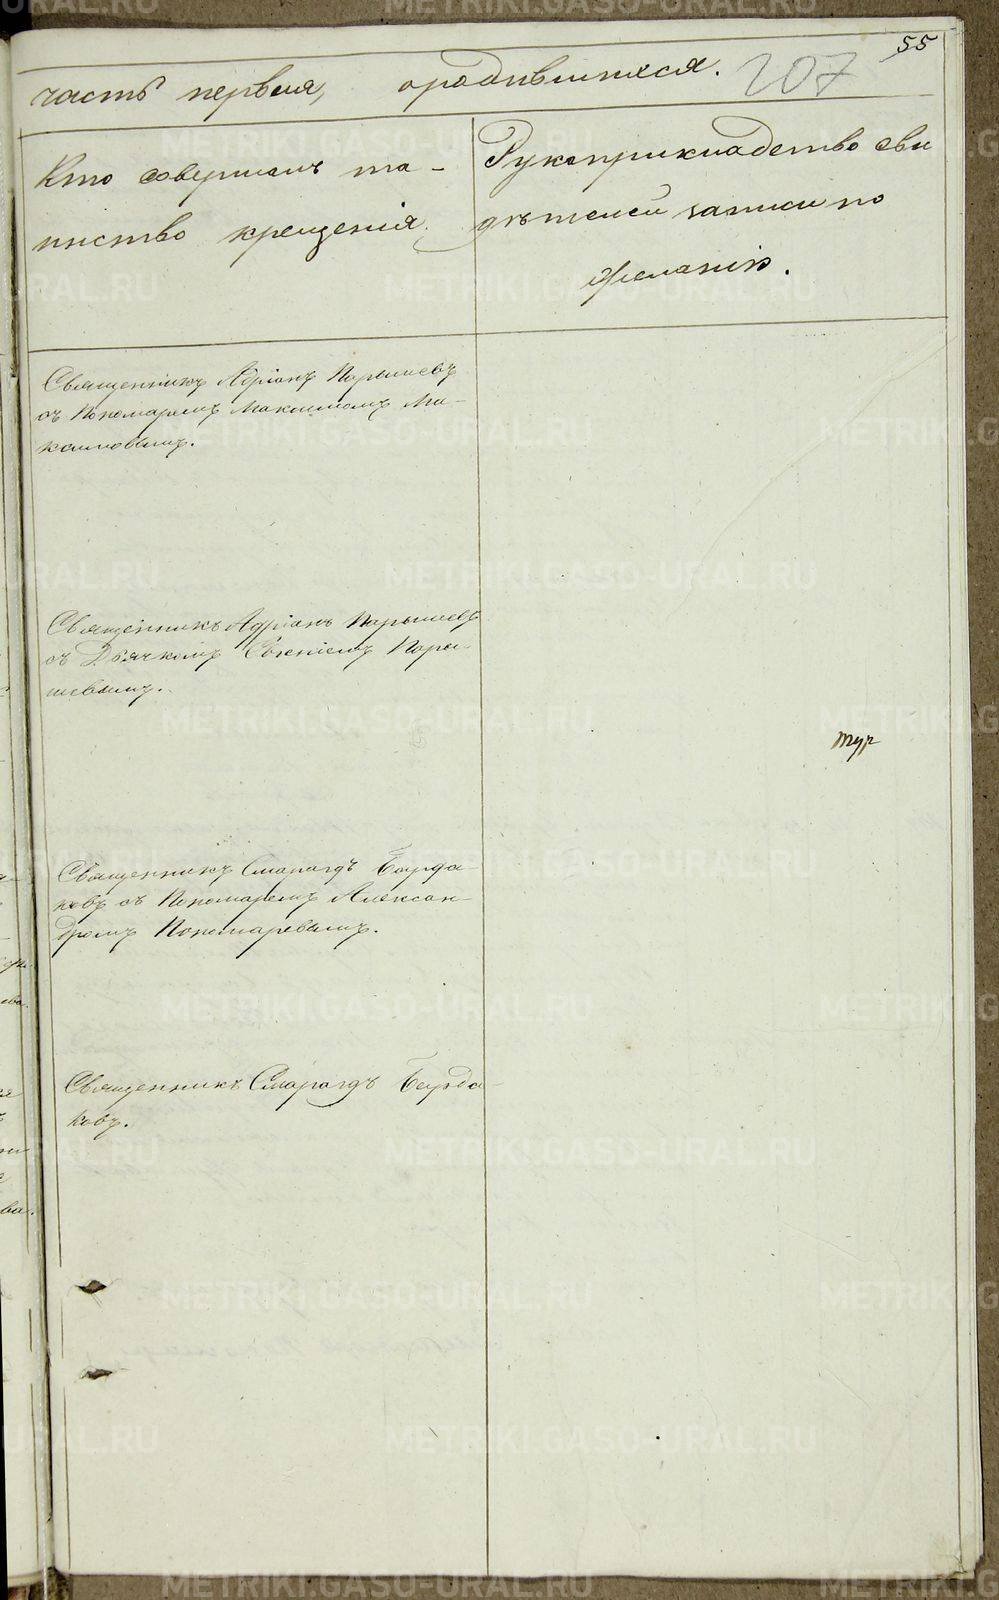 55
207
часть первая, ородившихся.
Кто совершалъ та-
инство крещенія.
Рукоприкладство сви
дѣтелей записи по
желанію.
Священникъ Адріанъ Парышевъ
съ Пономаремъ Максимомъ Ма-
каловымъ.
Священникъ Адріанъ Парышевъ
съ Дьячкомъ Евгеніемъ Пары-
шевымъ.
тур
Священникъ Смарагдъ Бурда-
ковъ съ Пономаремъ Алексан-
дромъ Пономаревымъ.
Священникъ Смарагдъ Бурда-
ковъ.
METRIKI.GASO-URAL.RU